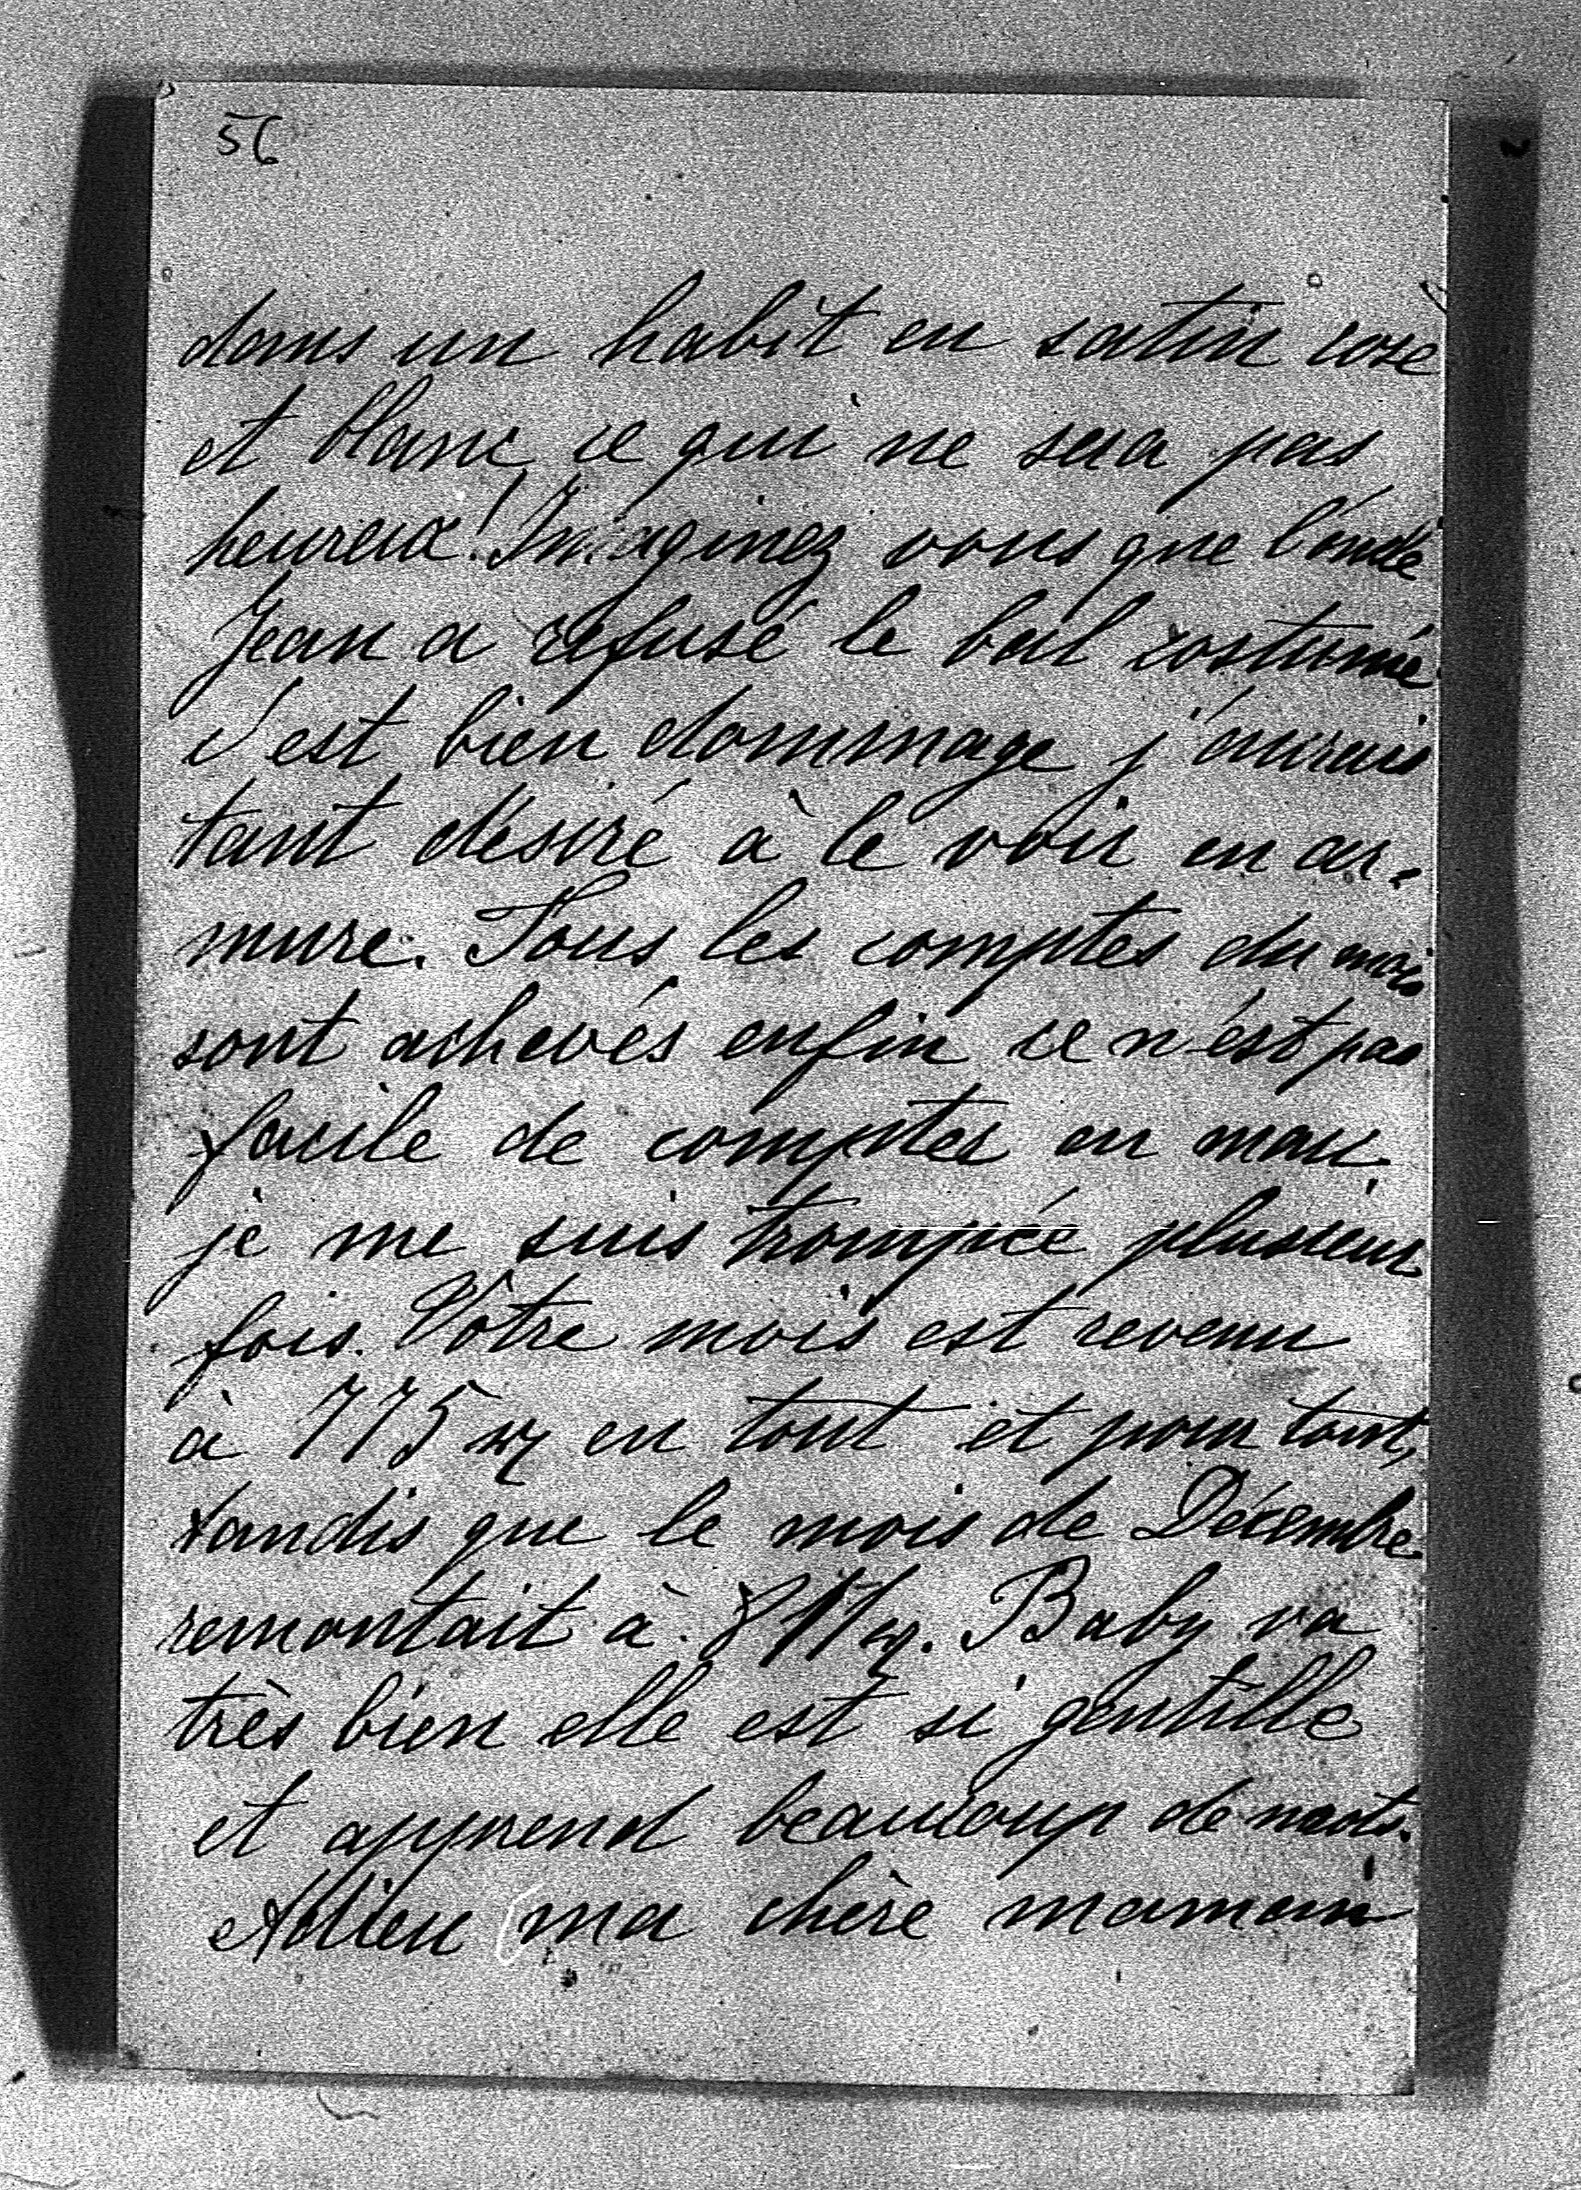 56
dans un habit en satin rose
et blanc ce qui ne sera pas
heureux! Imaginez vous que l'oncle
Jean a refusé le bal costumé
c'est bien dommage j'aurais
tant désiré à le voir en ar-
mure. Tous les comptes du mois
sont achevés enfin ce n'est pas
facile de compter en
je me suis trompée plusieurs
fois. Vôtre mois est revenu
à 775 en tout et pour tout,
tandis que le mois de Décembre
remontait à Baby va
très bien elle est si gentille
et apprend beaucoup de mots.
Adieu ma chère maman